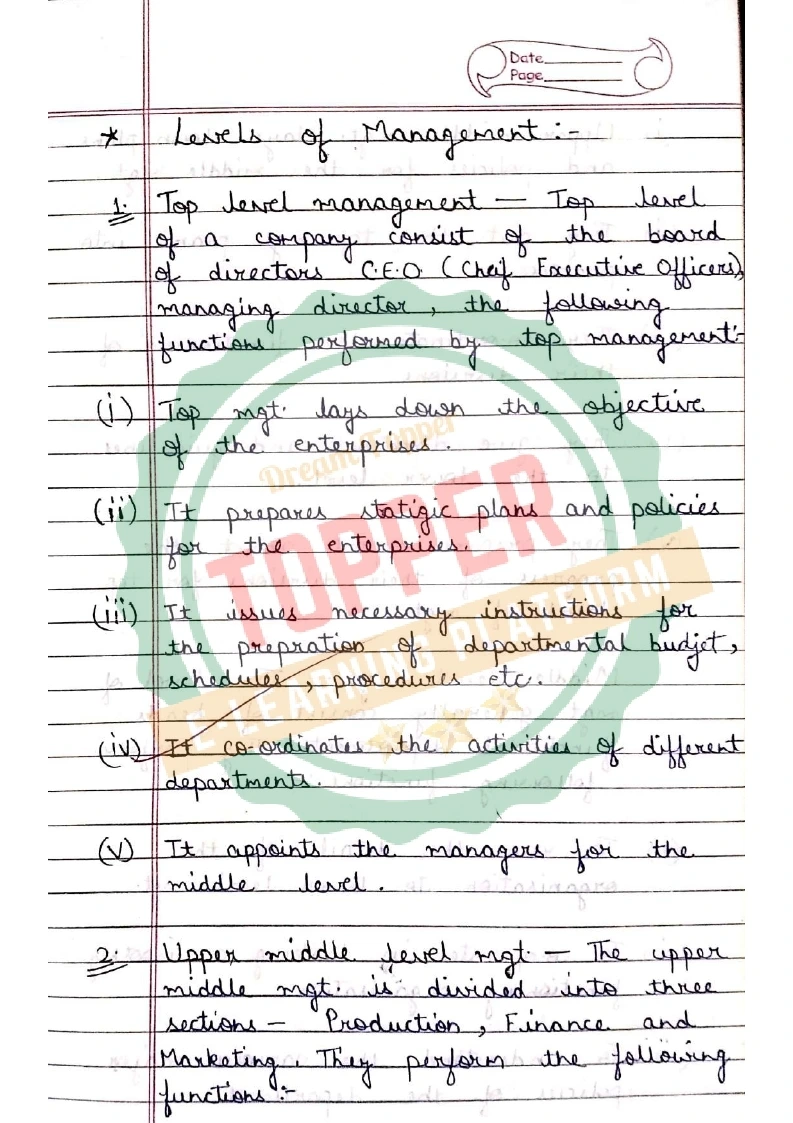 Date
Page
* Levels of Management :-
1. Top level management — Top level
of a company consist of the board
of directors C.E.O. (Cheif Executive Officers),
managing director, the following
functions performed by top management:-
(i) Top mgt. lays down the objective
of the enterprises.
Dream Topper
(ii) It prepares statigic plans and policies
for the enterprises.
TOPPER
(iii) It issues necessary instructions for
the prepration of departmental budjet,
schedules, procedures etc.
E-LEARNING PLATFORM
(iv) It co-ordinates the activities of different
departments.
(v) It appoints the managers for the
middle level.
2. Upper middle level mgt — The upper
middle mgt. is divided into three
sections — Production, Finance and
Marketing. They perform the following
functions :-